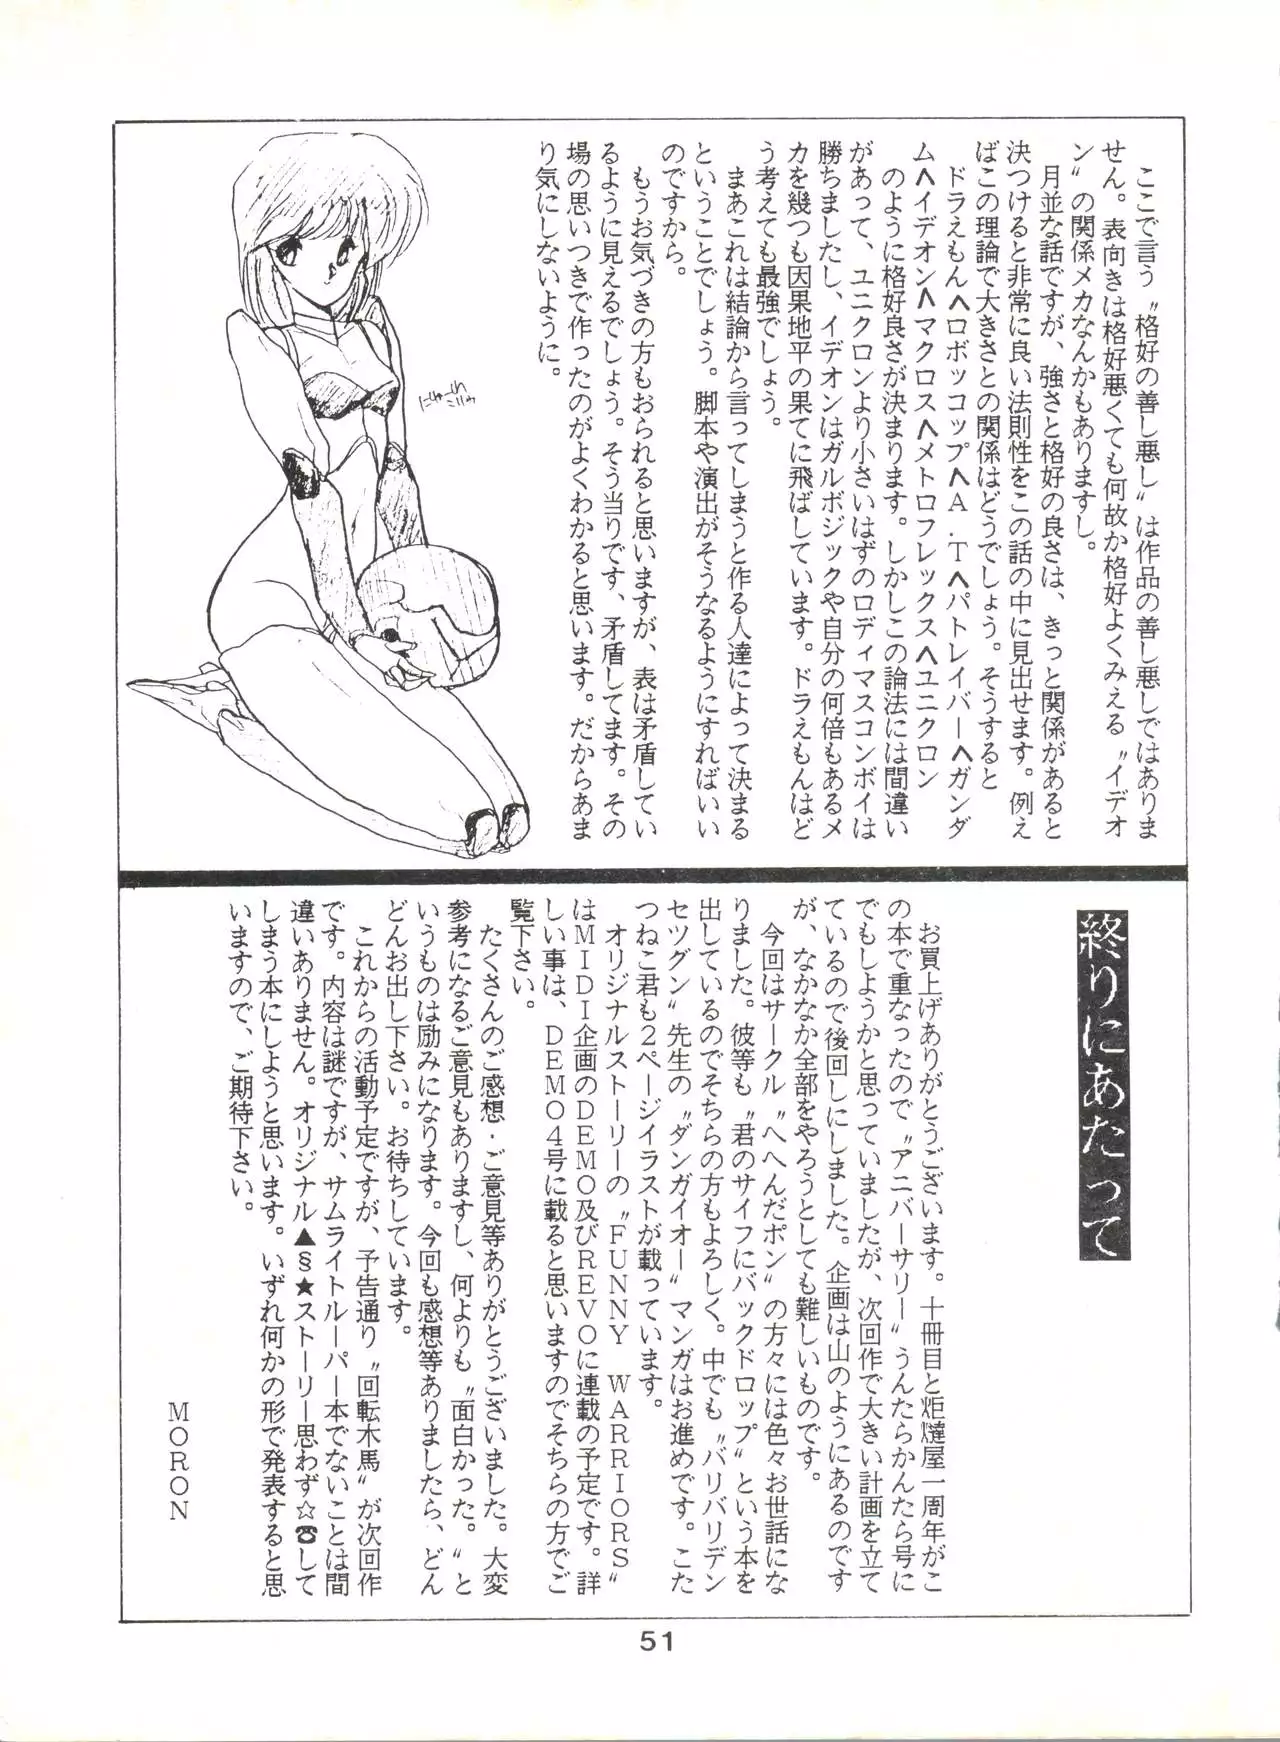 ここで言う〝格好の善し悪し〟は作品の善し悪しではありま
せん。表向きは格好悪くても何故か格好よくみえる〝イデオ
ン〟の関係メカなんかもありますし。
月並な話ですが、強さと格好の良さは、きっと関係があると
決つけると非常に良い法則性をこの話の中に見出せます。例え
ばこの理論で大きさとの関係はどうでしょう。そうすると
ドラえもんヘロボッコップヘA.Tヘパトレイバーヘガンダ
ムヘイデオンヘマクロスヘメトロフレックスヘユニクロン
のように格好良さが決まります。しかしこの論法には間違い
があって、ユニクロンより小さいはずのロディマスコンボイは
勝ちましたし、イデオンはガルボジックや自分の何倍もあるメ
カを幾つも因果地平の果てに飛ばしています。ドラえもんはど
う考えても最強でしょう。
まあこれは結論から言ってしまうと作る人達によって決まる
ということでしょう。脚本や演出がそうなるようにすればいい
のですから。
もうお気づきの方もおられると思いますが、表は矛盾してい
るように見えるでしょう。そう当りです、矛盾してます。その
場の思いつきで作ったのがよくわかると思います。だからあま
り気にしないように。
終りにあたって
お買上げありがとうございます。十冊目と炬燵屋一周年がこ
の本で重なったので〝アニバーサリー〟うんたらかんたら号に
でもしようかと思っていましたが、次回作で大きい計画を立て
ているので後回しにしました。企画は山のようにあるのです
が、なかなか全部をやろうとしても難しいものです。
今回はサークル〝へへんだポン〟の方々には色々お世話にな
りました。彼等も〝君のサイフにバックドロップ〟という本を
出しているのでそちらの方もよろしく。中でも〝バリバリデン
セツグン〟先生の〝ダンガイオー〟マンガはお進めです。こた
つねこ君も2ページイラストが載っています。
オリジナルストーリーの〝FUNNY WARRIORS〟
はMIDI企画のDEMO及びREVOに連載の予定です。詳
しい事は、DEMO4号に載ると思いますのでそちらの方でご
覧下さい。
たくさんのご感想・ご意見等ありがとうございました。大変
参考になるご意見もありますし、何よりも〝面白かった。〟と
いうものは励みになります。今回も感想等ありましたら、どん
どんお出し下さい。お待ちしています。
これからの活動予定ですが、予告通り〝回転木馬〟が次回作
です。内容は謎ですが、サムライトルーパー本でないことは間
違いありません。オリジナル▲§★ストーリー思わず☆☎して
しまう本にしようと思います。いずれ何かの形で発表すると思
いますので、ご期待下さい。
MORON
51